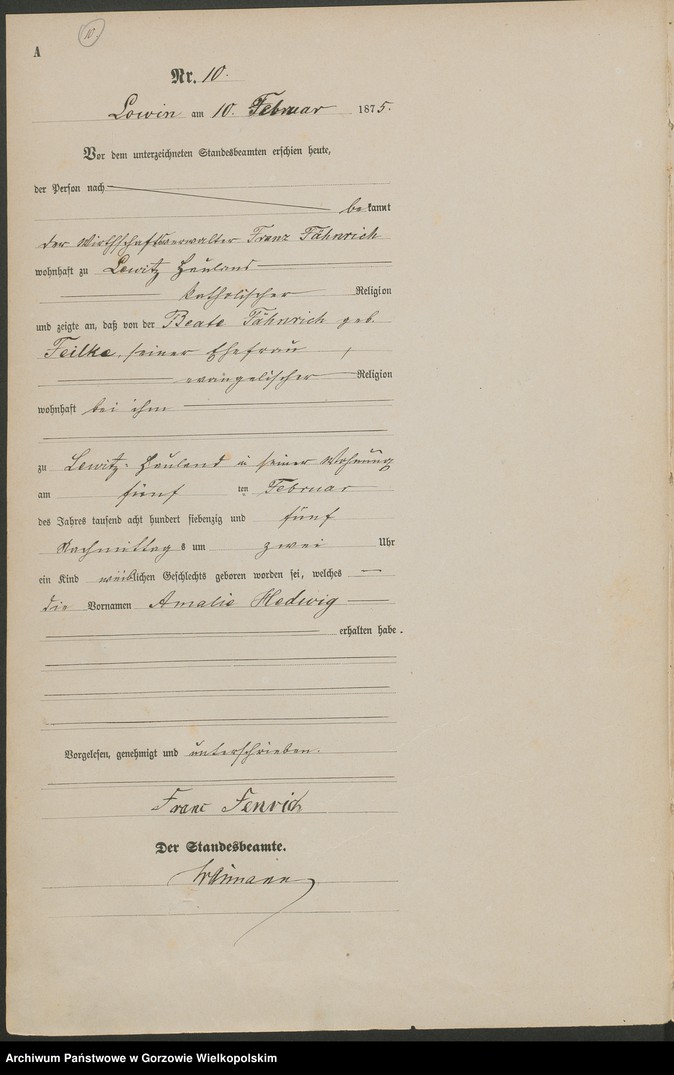 10.
A
Nr. 10.
Lowin am 10. Februar 1875.
Vor dem unterzeichneten Standesbeamten erschien heute,
der Person nach
bekannt
der Wirthschaftsverwalter Franz Fähnrich
wohnhaft zu Lewitz Hauland
katholischer Religion
und zeigte an, daß von der Beate Fähnrich geb.
Feilke, seiner Ehefrau,
evangelischer Religion
wohnhaft bei ihm
zu Lewitz-Hauland in seiner Wohnung
am fünf ten Februar
des Jahres tausend acht hundert siebenzig und fünf
Nachmittags um zwei Uhr
ein Kind weiblichen Geschlechts geboren worden sei, welches
die Vornamen Amalie Hedwig
erhalten habe.
Vorgelesen, genehmigt und unterschrieben.
Franc Fenrich
Der Standesbeamte.
Archiwum Państwowe w Gorzowie Wielkopolskim